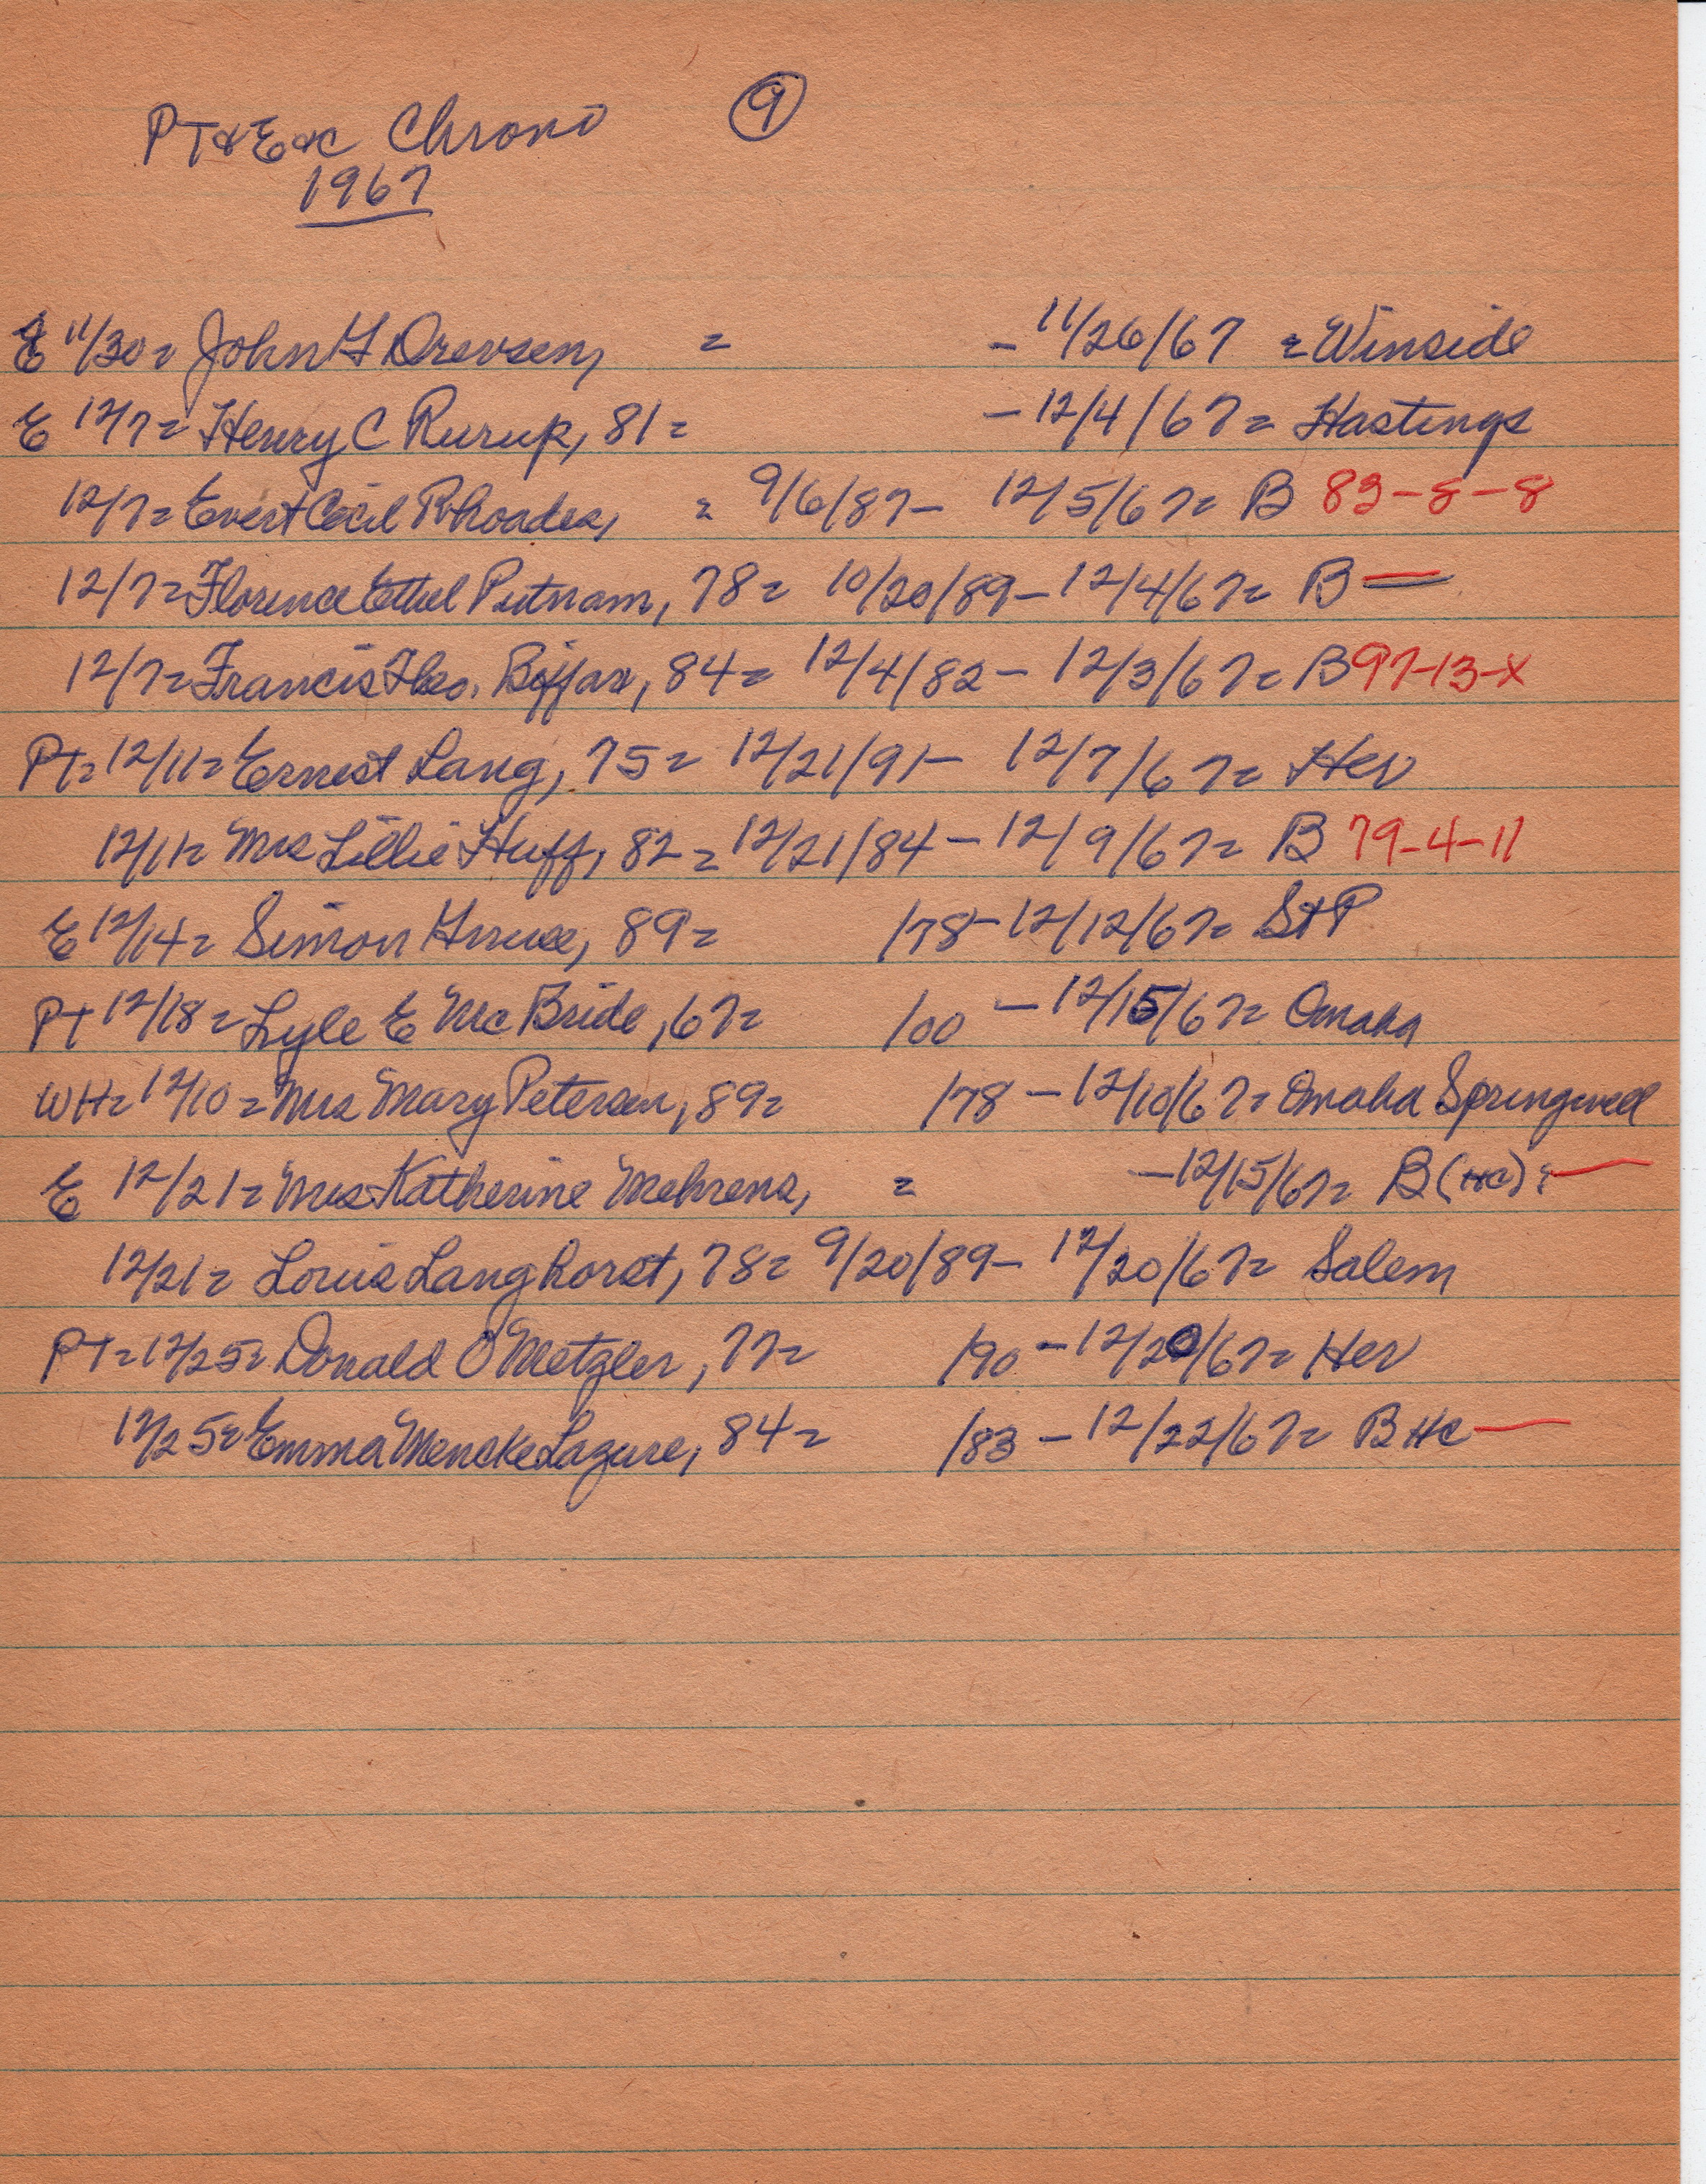 PT & E &c Chrono 9
1967
E 11/30 = John G Drevsen, = - 11/26/67 = Winside
E 12/7 = Henry C Rurup, 81 = - 12/4/67 = Hastings
12/7 = Evert Cecil Rhoades, = 9/6/87 - 12/5/67 = B 83-8-8
12/7 = Florence Ethel Putnam, 78 = 10/20/89 - 12/4/67 = B —
12/7 = Francis Theo. Biffar, 84 = 12/4/82 - 12/3/67 = B 97-13-X
PT = 12/11 = Ernest Lang, 75 = 12/21/91 - 12/7/67 = Her
12/11 = Mrs Lillie Huff, 82 = 12/21/84 - 12/9/67 = B 79-4-11
E 12/14 = Simon 89 = /78 - 12/12/67 = St P
PT 12/18 = Lyle E McBride, 67 = /00 - 12/15/67 = Omaha
WH = 12/10 = Mrs Mary Petersen, 89 = /78 - 12/10/67 = Omaha Springwell
E 12/21 = Mrs Katherine Mehrens, = - 12/15/67 = B (HC) : —
12/21 = Louis Langhorst, 78 = 9/20/89 - 12/20/67 = Salem
PT = 12/25 = Donald O Metzler, 77 = /90 - 12/20/67 = Her
12/25 = Emma Mencke Lazure, 84 = /83 - 12/22/67 = B HC —